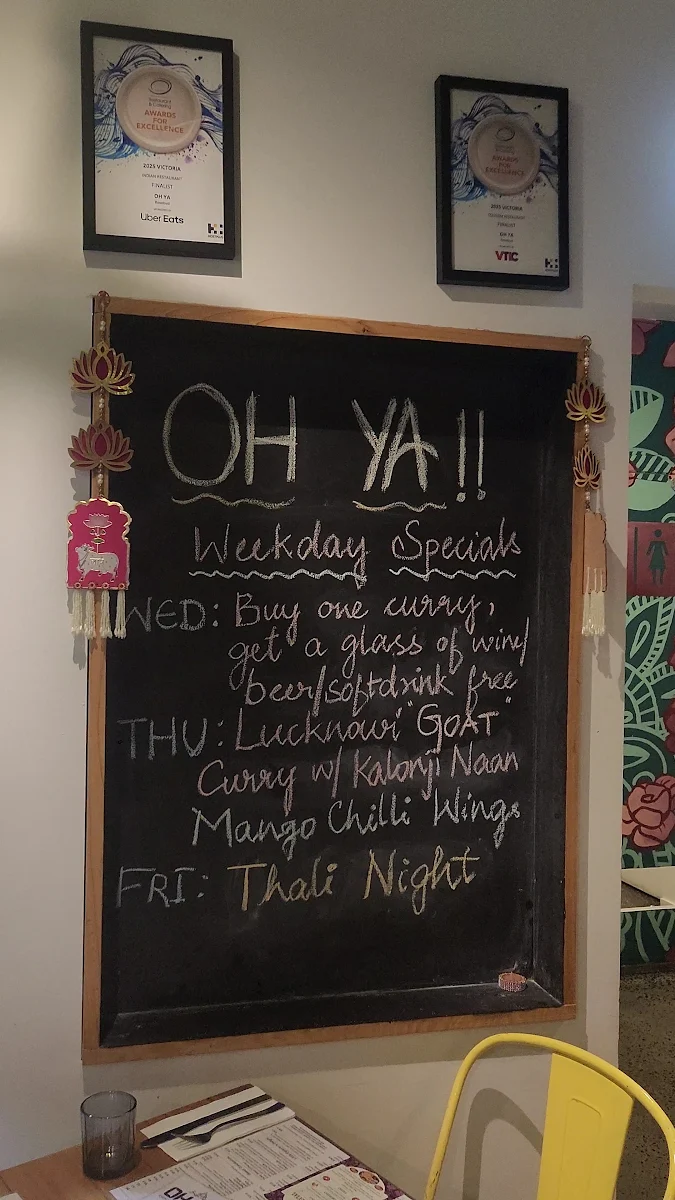 Restaurant
& Catering
AWARDS
FOR
EXCELLENCE
2025 VICTORIA
INDIAN RESTAURANT
FINALIST
OH YA
Uber Eats
AWARDS
FOR
EXCELLENCE
2025 VICTORIA
INDIAN RESTAURANT
FINALIST
OH YA
VTIC
OH YA!!
Weekday Specials
WED: Buy one curry,
get a glass of wine/
beer/softdrink free
THU: Lucknowi "GOAT"
Curry w/ Kalonji Naan
Mango Chilli Wings
FRI: Thali Night